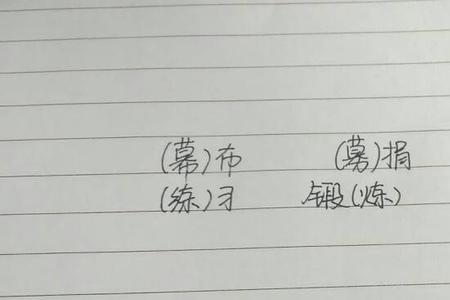 (幕)布 (募)捐
(练)习 锻(炼)